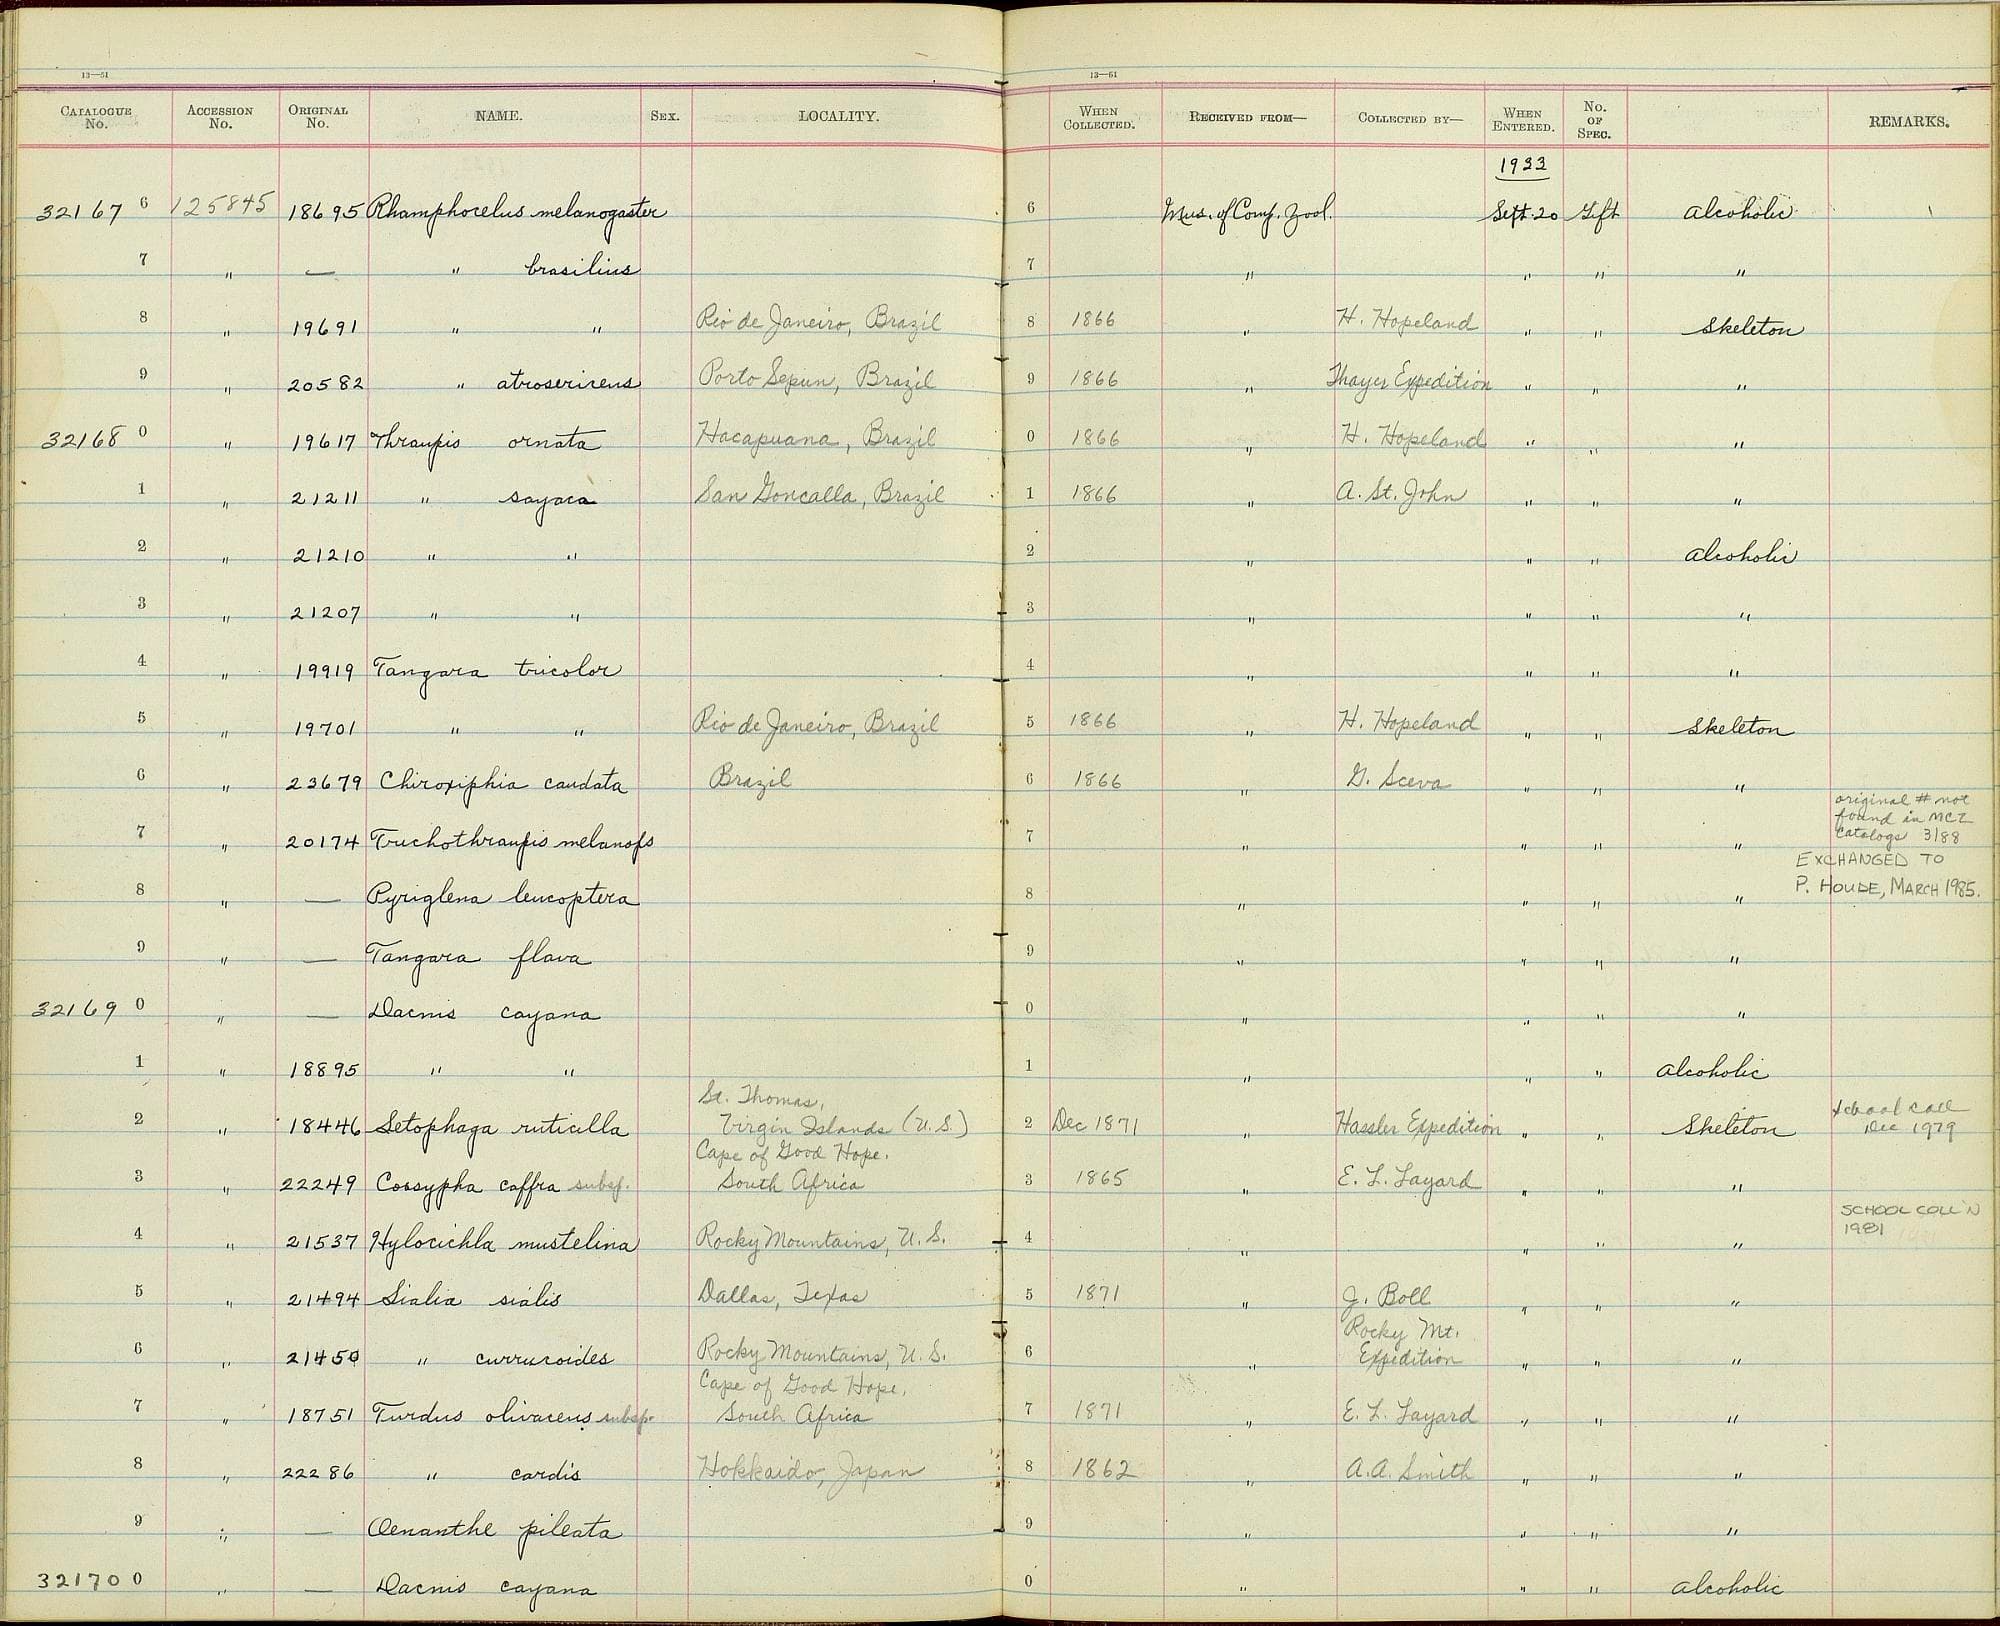 13—51
13—61
CATALOGUE No. ACCESSION No. ORIGINAL No. NAME. SEX. LOCALITY. WHEN COLLECTED. RECEIVED FROM— COLLECTED BY— WHEN ENTERED. No. OF SPEC. REMARKS.
1933
32167 6 125845 18695 Rhamphocelus melanogaster 6 Mus. of Comp. Zool. Sept. 20 Gift Alcoholic
7 " — " brasilius 7 " " " "
8 " 19691 " " Rio de Janeiro, Brazil 8 1866 " H. Hopeland " " Skeleton
9 " 20582 " atrosericeus Porto Sepun, Brazil 9 1866 " Thayer Expedition " " "
32168 0 " 19617 Thraupis ornata Hacapuana, Brazil 0 1866 " H. Hopeland " " "
1 " 21211 " sayaca San Goncalla, Brazil 1 1866 " A. St. John " " "
2 " 21210 " " 2 " " " Alcoholic
3 " 21207 " " 3 " " " "
4 " 19919 Tangara tricolor 4 " " " "
5 " 19701 " " Rio de Janeiro, Brazil 5 1866 " H. Hopeland " " Skeleton
6 " 23679 Chiroxiphia caudata Brazil 6 1866 " G. Sceva " " "
original # not
found in MCZ
7 " 20174 Trichothraupis melanops 7 " " " " catalogs 3/88
EXCHANGED TO
8 " — Pyriglena leucoptera 8 " " " " P. HOUDE, MARCH 1985.
9 " — Tangara flava 9 " " " "
32169 0 " — Dacnis cayana 0 " " " "
1 " 18895 " " 1 " " " Alcoholic
St. Thomas,
2 " 18446 Setophaga ruticilla Virgin Islands (U.S.) 2 Dec 1871 " Hassler Expedition " " Skeleton school coll Dec 1979
Cape of Good Hope,
3 " 22249 Cossypha caffra subsp. South Africa 3 1865 " E. L. Layard " " "
SCHOOL COLL'N
1981
4 " 21537 Hylocichla mustelina Rocky Mountains, U.S. 4 " " " "
5 " 21494 Sialia sialis Dallas, Texas 5 1871 " J. Boll " " "
Rocky Mt.
6 " 21450 " currucoides Rocky Mountains, U.S. 6 " Expedition " " "
Cape of Good Hope,
7 " 18751 Turdus olivaceus subsp. South Africa 7 1871 " E. L. Layard " " "
8 " 22286 " cardis Hokkaido, Japan 8 1862 " A. A. Smith " " "
9 " — Oenanthe pileata 9 " " " "
32170 0 " — Dacnis cayana 0 " " " Alcoholic